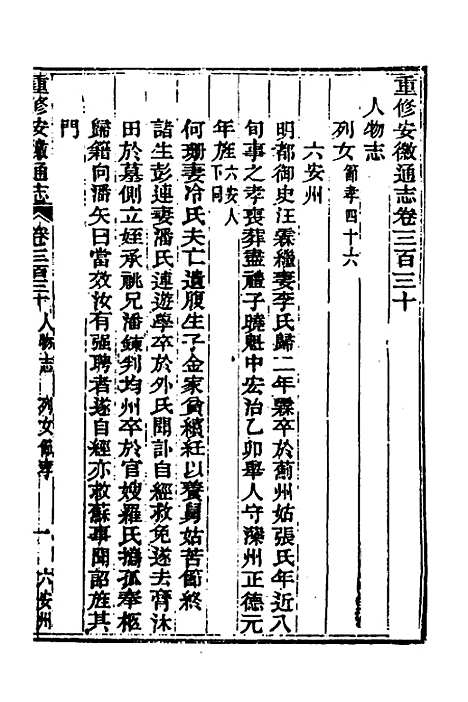 重修安徽通志卷三百三十
人物志
列女節孝四十六
六安州
明都御史汪霖繼妻李氏歸二年霖卒於薊州姑張氏年近八
旬事之孝喪葬盡禮子曉魁中宏治乙卯舉人守灤州正德元
年旌六安人下同
何珊妻冷氏夫亡遺腹生子金家貧績紝以養舅姑苦節終
諸生彭連妻潘氏連遊學卒於外氏聞訃自經救免遂去膏沐
田於墓側立姪承祧兄潘鍊判均州卒於官嫂羅氏攜孤奉柩
歸籍向潘矢曰當效汝有强聘者遂自經亦救蘇事聞詔旌其
門
重修安徽通志 卷三百三十 人物志 列女節孝 一 六安州